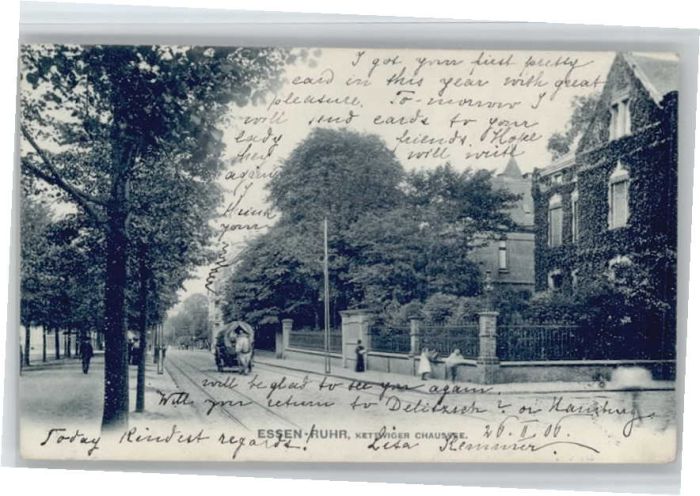 I got your first pretty
card in this year with great
pleasure. To-morrow I
will send cards to your
lady friends. Hope
they will write
again.
I
think
your
will be glad to see you again.
Will you return to Delitzsch or Hamburg.
ESSEN-RUHR, KETTWIGER CHAUSSEE.
Today Kindest regards! Lisa